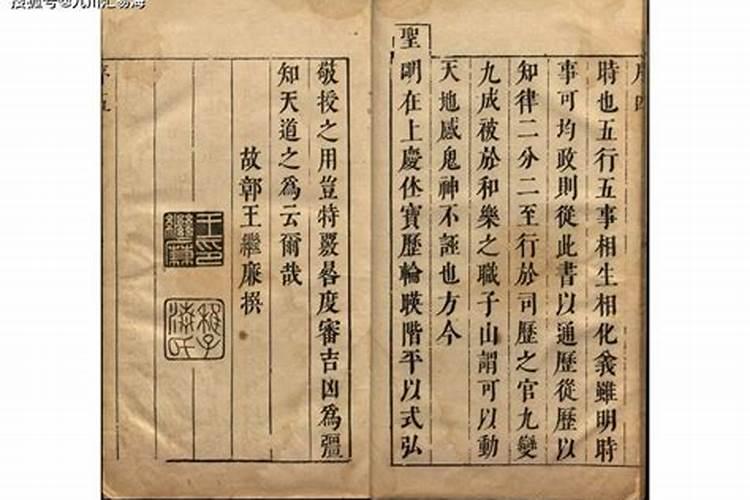 時也五行五事相生相化義雖明時
事可均政則從此書以通歷從歷以
知律二分二至行於司歷之官九變
九成被於和樂之職子山謂可以動
天地感鬼神不誣也方今
聖
明在上慶休寶歷輪暎階平以式弘
敬授之用豈特覈晷度審吉凶為彊
知天道之為云爾哉
故鄣王繼廉撰